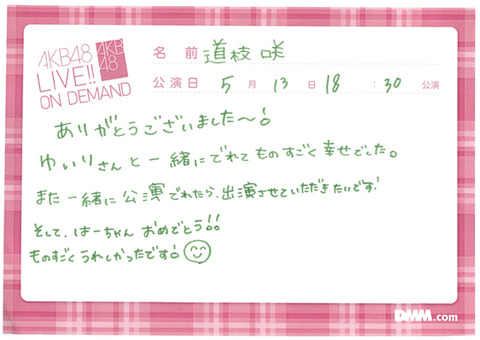 AKB48
LIVE!!
ON DEMAND
AKB
48
名 前 道枝 咲
公演日 5 月 13 日 18 : 30 公演
ありがとうございました〜!
ゆいりさんと一緒にでれてものすごく幸せでした。
また一緒に公演でれたら、出演させていただきたいです!
そして、はーちゃん おめでとう!!
ものすごくうれしかったです!
DMM.com